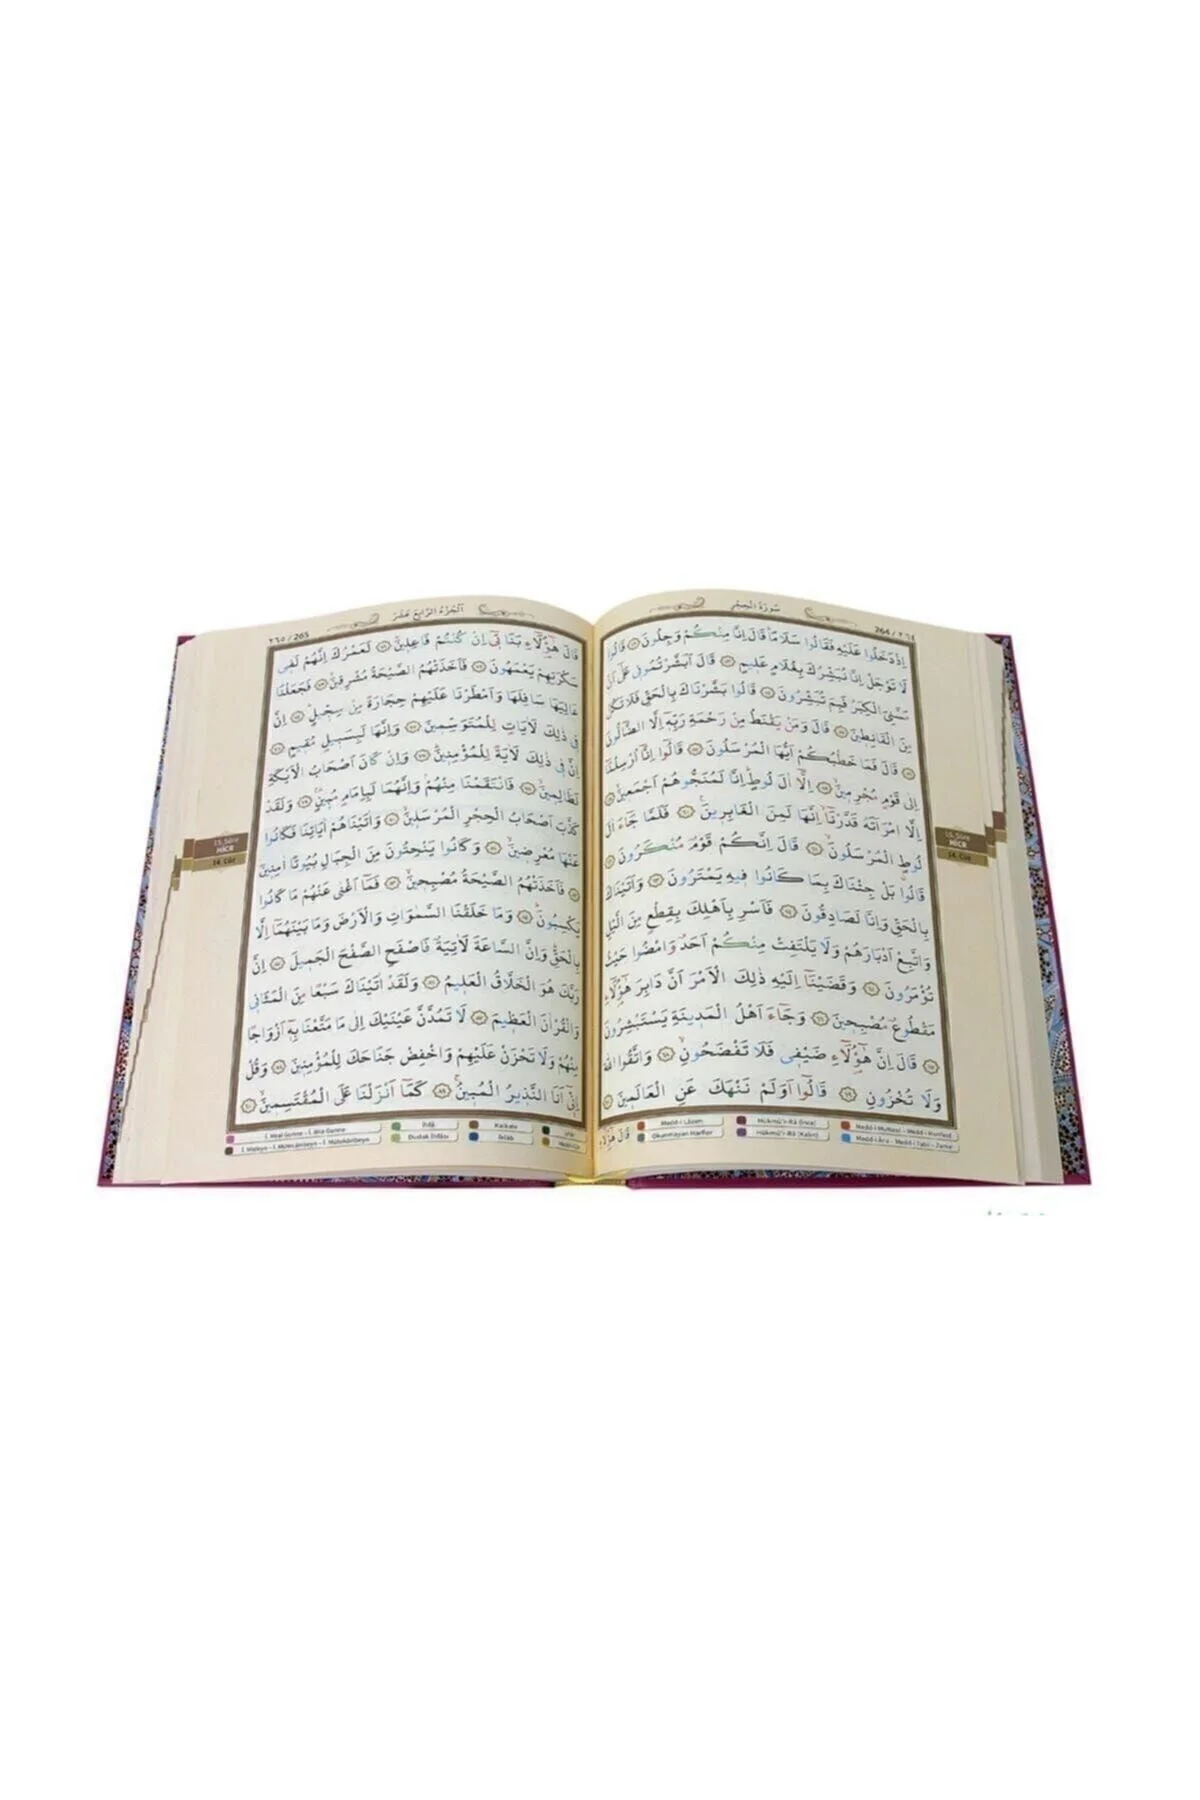 سورة الحجر
264 / ٢٦٤
اِذْ دَخَلُوا عَلَيْهِ فَقَالُوا سَلَامًا قَالَ اِنَّا مِنْكُمْ وَجِلُونَ ۝ قَالُوا
لَا تَوْجَلْ اِنَّا نُبَشِّرُكَ بِغُلَامٍ عَلِيمٍ ۝ قَالَ اَبَشَّرْتُمُونِي عَلٰٓى اَنْ
مَسَّنِيَ الْكِبَرُ فَبِمَ تُبَشِّرُونَ ۝ قَالُوا بَشَّرْنَاكَ بِالْحَقِّ فَلَا تَكُنْ
مِنَ الْقَانِطِينَ ۝ قَالَ وَمَنْ يَقْنَطُ مِنْ رَحْمَةِ رَبِّهٖٓ اِلَّا الضَّٓالُّونَ
۝ قَالَ فَمَا خَطْبُكُمْ اَيُّهَا الْمُرْسَلُونَ ۝ قَالُٓوا اِنَّٓا اُرْسِلْنَٓا
اِلٰى قَوْمٍ مُجْرِمِينَ ۝ اِلَّٓا اٰلَ لُوطٍ اِنَّا لَمُنَجُّوهُمْ اَجْمَعِينَ ۝
اِلَّا امْرَاَتَهُ قَدَّرْنَٓا اِنَّهَا لَمِنَ الْغَابِرِينَ ۝ فَلَمَّا جَٓاءَ اٰلَ
لُوطٍ الْمُرْسَلُونَ ۝ قَالَ اِنَّكُمْ قَوْمٌ مُنْكَرُونَ ۝
قَالُوا بَلْ جِئْنَاكَ بِمَا كَانُوا فِيهِ يَمْتَرُونَ ۝ وَاَتَيْنَاكَ
بِالْحَقِّ وَاِنَّا لَصَادِقُونَ ۝ فَاَسْرِ بِاَهْلِكَ بِقِطْعٍ مِنَ الَّيْلِ
وَاتَّبِعْ اَدْبَارَهُمْ وَلَا يَلْتَفِتْ مِنْكُمْ اَحَدٌ وَامْضُوا حَيْثُ
تُؤْمَرُونَ ۝ وَقَضَيْنَٓا اِلَيْهِ ذٰلِكَ الْاَمْرَ اَنَّ دَابِرَ هٰٓؤُ۬لَٓاءِ
مَقْطُوعٌ مُصْبِحِينَ ۝ وَجَٓاءَ اَهْلُ الْمَدِينَةِ يَسْتَبْشِرُونَ
۝ قَالَ اِنَّ هٰٓؤُ۬لَٓاءِ ضَيْفِي فَلَا تَفْضَحُونِ ۝ وَاتَّقُوا اللّٰهَ
وَلَا تُخْزُونِ ۝ قَالُٓوا اَوَلَمْ نَنْهَكَ عَنِ الْعَالَمِينَ ۝
قَالَ هٰٓؤُ۬لَٓاءِ
Medd-i Lâzım
Hükmü'r-Râ (İnce)
Medd-i Muttasıl - Medd-i Munfasıl
Okunmayan Harfler
Hükmü'r-Râ (Kalın)
15. Sûre
HİCR
14. Cüz
اَلْجُزْءُ الرَّابِعَ عَشَرَ
٢٦٥ / 265
قَالَ هٰٓؤُ۬لَٓاءِ بَنَاتِٓي اِنْ كُنْتُمْ فَاعِلِينَ ۝ لَعَمْرُكَ اِنَّهُمْ لَفِي
سَكْرَتِهِمْ يَعْمَهُونَ ۝ فَاَخَذَتْهُمُ الصَّيْحَةُ مُشْرِقِينَ ۝ فَجَعَلْنَا
عَالِيَهَا سَافِلَهَا وَاَمْطَرْنَا عَلَيْهِمْ حِجَارَةً مِنْ سِجِّيلٍ ۝ اِنَّ
فِي ذٰلِكَ لَاٰيَاتٍ لِلْمُتَوَسِّمِينَ ۝ وَاِنَّهَا لَبِسَبِيلٍ مُقِيمٍ ۝
اِنَّ فِي ذٰلِكَ لَاٰيَةً لِلْمُؤْمِنِينَ ۝ وَاِنْ كَانَ اَصْحَابُ الْاَيْكَةِ
لَظَالِمِينَ ۝ فَانْتَقَمْنَا مِنْهُمْ وَاِنَّهُمَا لَبِاِمَامٍ مُبِينٍ ۝ وَلَقَدْ
كَذَّبَ اَصْحَابُ الْحِجْرِ الْمُرْسَلِينَ ۝ وَاٰتَيْنَاهُمْ اٰيَاتِنَا فَكَانُوا
عَنْهَا مُعْرِضِينَ ۝ وَكَانُوا يَنْحِتُونَ مِنَ الْجِبَالِ بُيُوتًا اٰمِنِينَ
۝ فَاَخَذَتْهُمُ الصَّيْحَةُ مُصْبِحِينَ ۝ فَمَٓا اَغْنٰى عَنْهُمْ مَا كَانُوا
يَكْسِبُونَ ۝ وَمَا خَلَقْنَا السَّمٰوَاتِ وَالْاَرْضَ وَمَا بَيْنَهُمَٓا اِلَّا
بِالْحَقِّ وَاِنَّ السَّاعَةَ لَاٰتِيَةٌ فَاصْفَحِ الصَّفْحَ الْجَمِيلَ ۝ اِنَّ
رَبَّكَ هُوَ الْخَلَّاقُ الْعَلِيمُ ۝ وَلَقَدْ اٰتَيْنَاكَ سَبْعًا مِنَ الْمَثَانِي
وَالْقُرْاٰنَ الْعَظِيمَ ۝ لَا تَمُدَّنَّ عَيْنَيْكَ اِلٰى مَا مَتَّعْنَا بِهٖٓ اَزْوَاجًا
مِنْهُمْ وَلَا تَحْزَنْ عَلَيْهِمْ وَاخْفِضْ جَنَاحَكَ لِلْمُؤْمِنِينَ ۝ وَقُلْ
اِنِّٓي اَنَا النَّذِيرُ الْمُبِينُ ۝ كَمَٓا اَنْزَلْنَا عَلَى الْمُقْتَسِمِينَ ۝
İhfâ
Kalkale
Dudak İhfâsı
İklâb
15. Sûre
HİCR
14. Cüz